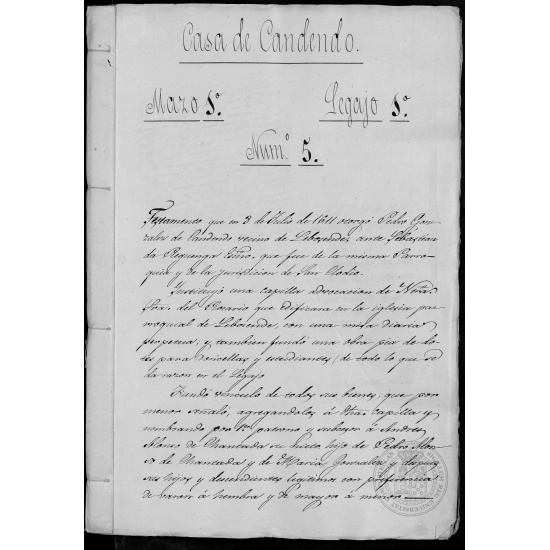 Casa de Candendo.
Mazo 1º Legajo 1º
Num.º 5.
Testamento que en 2 de Julio de 1611 otorgó Pedro Gon-
zalez de Candendo vecino de Lebosende, ante Sebastian
da Requenga Esno. que fue de la misma Parro-
quia y de la jurisdicion de San Clodio.
Instituyó una capilla advocacion de Ntra.
Sra. del Rosario que edificara en la iglesia par-
roquial de Lebosende, con una misa diaria
perpetua; y tambien fundó una obra pia de do-
tes para doncellas y estudiantes, de todo lo que se
da razon en el Legajo
Fundó vinculo de todos sus bienes, que por
menor señaló, agregandolos á dha. capilla y
nombrando por 1er patrono y subcesor á Andres
Alonso de Chantada su nieto hijo de Pedro Alon-
so de Chantada y de Maria Gonzalez y despues
sus hijos y descendientes legitimos con preferencia
de varon á hembra y de mayor á menor.